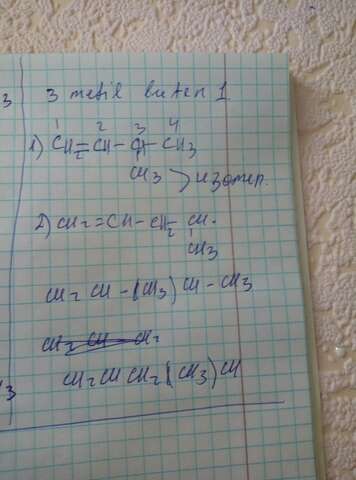 3 metil buten 1
1 2 3 4
1) CH2=CH-CH-CH3
CH3 > изомер.
2) CH2=CH-CH2-CH.
CH3
CH2 CH-(CH3)CH-CH3
CH2 CH CH2
CH2 CH CH2(CH3)CH